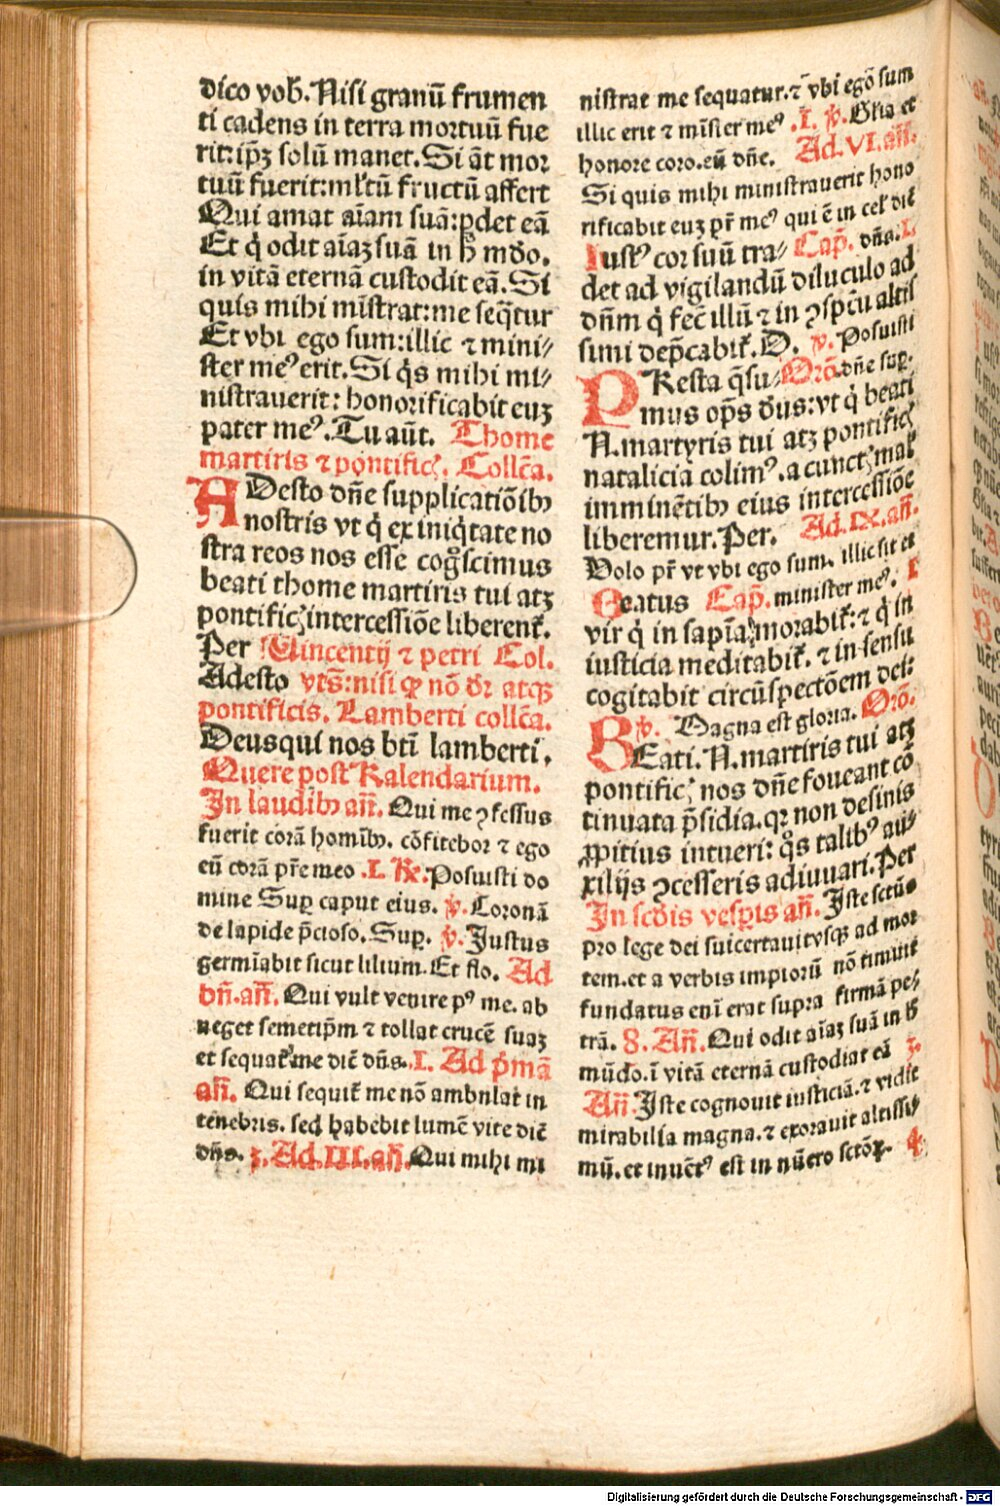 dico vob̄. Nisi granū frumen
ti cadens in terra mortuū fue
rit: ip̄ꝫ solū manet. Si āt mor
tuū fuerit: ml̄tū fructū affert
Qui amat aīam suā: ꝑdet eā
Et q̇ odit aīaꝫ suā in h̄ mūdo.
in vitā eternā custodit eā. Si
quis mihi mīstrat: me seq̄tur
Et vbi ego sum: illic ⁊ mini⸗
ster meꝰ erit. Si q̇s mihi mi⸗
nistrauerit: honorificabit euꝫ
pater meꝰ. Tu aūt. Thome
martiris ⁊ pontific̄. Collc̄a.
ADesto dn̄e supplicatiōibꝰ
nostris vt q̇ ex iniq̇tate no
stra reos nos esse cog̊scimus
beati thome martiris tui atꝫ
pontific̄ intercessiōe liberent̄.
Per Uincentij ⁊ petri Col.
Adesto vts̄: nisi ꝙ nō dr̄ atqꝫ
pontificis. Lamberti collc̄a.
Deus qui nos bt̄i lamberti.
Quere post Kalendarium.
In laudibꝰ an̄. Qui me ꝯfessus
fuerit corā homībꝰ. cōfitebor ⁊ ego
eū corā pr̄e meo .I. ℟. Posuisti do
mine Suꝑ caput eius. ℣. Coronā
de lapide p̄cioso. Suꝑ. ℣. Justus
germīabit sicut lilium. Et flo. Ad
bn̄. an̄. Qui vult venire pꝰ me. ab
neget semetip̄m ⁊ tollat crucē suaꝫ
et sequat̄ me dic̄ dn̄s. I. Ad p̄mā
an̄. Qui sequit̄ me nō ambulat in
tenebris. sed habebit lumē vite dic̄
dn̄s. ʒ. Ad. III. an̄. Qui mihi mi
nistrat me sequatur. ⁊ vbi egō sum
illic erit ⁊ mīster meꝰ .I. ℣. Glia et
honore coro. eū dn̄e. Ad. VI. an̄.
Si quis mihi ministrauerit hono
rificabit euꝫ pr̄ meꝰ qui ē in cel̄ dic̄
Iustꝰ cor suū tra⸗ Cap̄. dn̄s. I.
det ad vigilandū diluculo ad
dn̄m q̇ fec̄ illū ⁊ in ꝯspc̄u altis
simi dep̄cabit̄. D. ℣. Posuisti
PResta q̄su⸗ Orō. dn̄e suꝑ.
mus op̄s d̄us: vt q̇ beati
N. martyris tui atꝫ pontific̄
natalicia colimꝰ. a cunct̄ mal̄
imminētibꝰ eius intercessiōe
liberemur. Per. Ad. IX. an̄.
Uolo pr̄ vt vbi ego sum. illic sit et
Beatus Cap̄. minister meꝰ. I
vir q̇ in sapīa morabit̄: ⁊ q̇ in
iusticia meditabit̄. ⁊ in sensu
cogitabit circūspectōem dei:
℣. Magna est gloria. Orō.
BEati. N. martiris tui atꝫ
pontific̄ nos dn̄e foueant cō
tinuata p̄sidia. qꝛ non desinis
ꝓpitius intueri: q̊s talibꝰ au⸗
xilijs ꝯcesseris adiuuari. Per
In scd̄is vesꝑis an̄. Iste sctūs
pro lege dei sui certauit vsqꝫ ad mor
tem. et a verbis impiorū nō timuit
fundatus enī erat supra firmā pe⸗
trā. 8. An̄. Qui odit aīaꝫ suā in h̄
mūdo. ī vitā eternā custodiat eā ʒ.
An̄ Iste cognouit iusticiā. ⁊ vidit
mirabilia magna. ⁊ exorauit altissi⸗
mū. et inuētꝰ est in nūero sctōꝝ. 4.
Digitalisierung gefördert durch die Deutsche Forschungsgemeinschaft - DFG